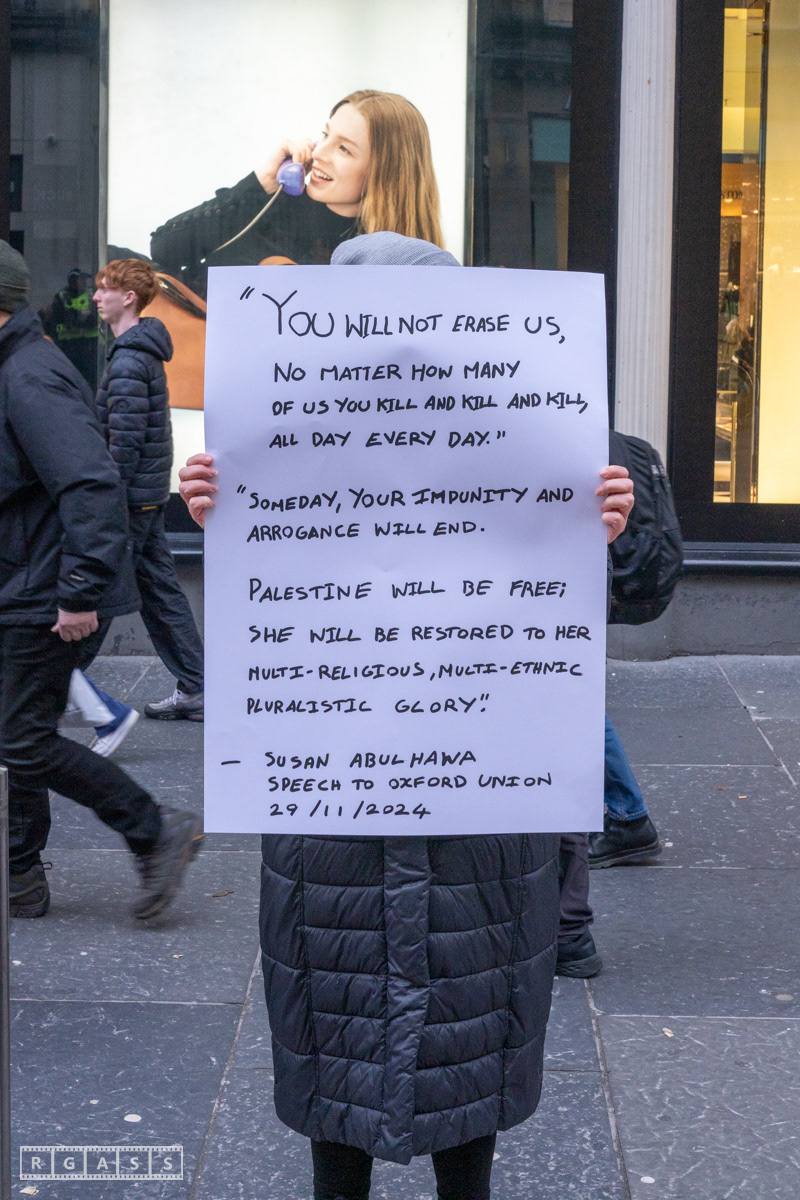 "YOU WILL NOT ERASE US,
NO MATTER HOW MANY
OF US YOU KILL AND KILL AND KILL,
ALL DAY EVERY DAY."
"SOMEDAY, YOUR IMPUNITY AND
ARROGANCE WILL END.
PALESTINE WILL BE FREE;
SHE WILL BE RESTORED TO HER
MULTI-RELIGIOUS, MULTI-ETHNIC
PLURALISTIC GLORY".
– SUSAN ABULHAWA
SPEECH TO OXFORD UNION
29/11/2024
RGASS